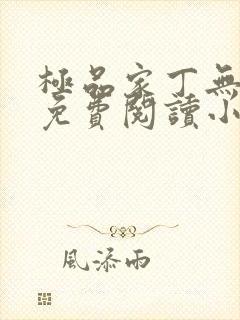 極品家丁無
免費閱讀小
風添雨